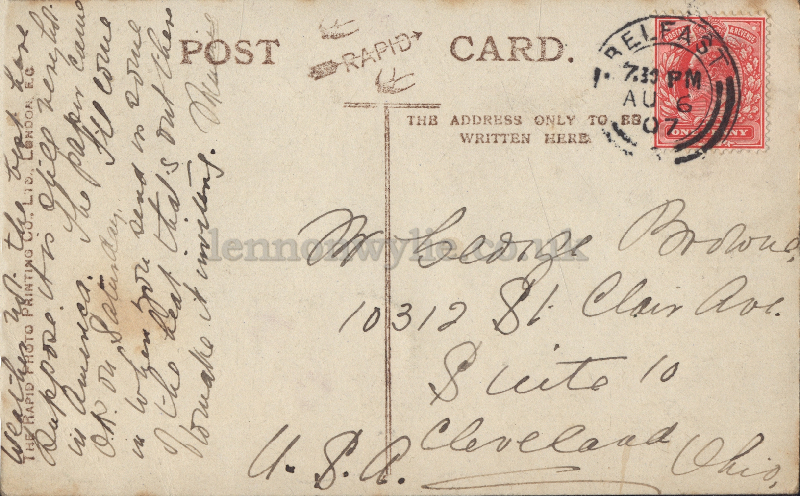 POST CARD.
RAPID
THE ADDRESS ONLY TO BE
WRITTEN HERE.
BELFAST
7.30 PM
AU 6
07
ONE PENNY
Mr George Browne,
10312 St. Clair Ave.
Suite 10
Cleveland
Ohio,
U. S. A.
Weather not the best here
Suppose it is quite
in America. The paper came
O.K. on Saturday. I'll come
in when you send in some
of the heat that's out there
to make it inviting.
THE RAPID PHOTO PRINTING CO., LTD., LONDON, E.C.
lennonwylie.co.uk